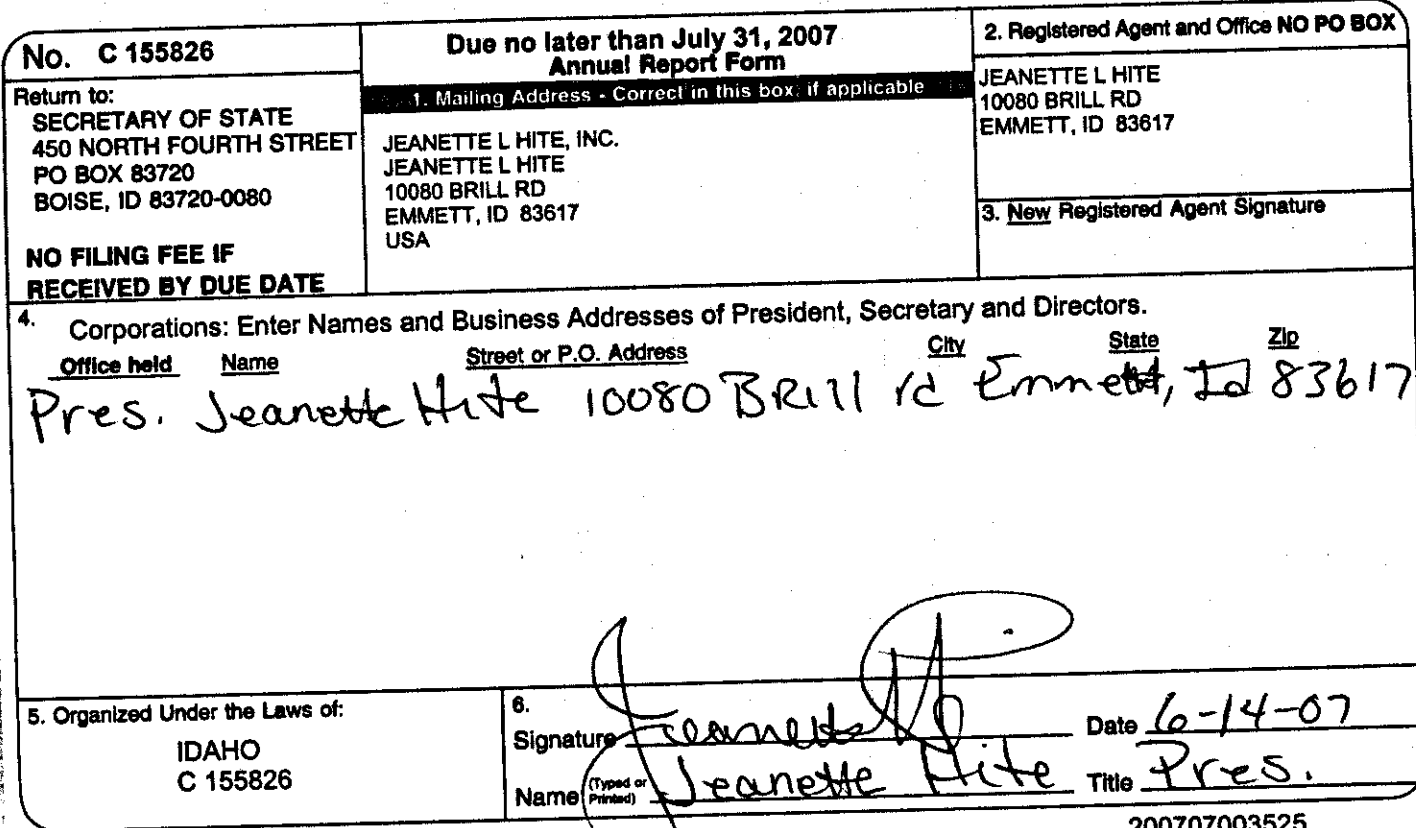 No. C 155826
Return to:
SECRETARY OF STATE
450 NORTH FOURTH STREET
PO BOX 83720
BOISE, ID 83720-0080
NO FILING FEE IF
RECEIVED BY DUE DATE
Due no later than July 31, 2007
Annual Report Form
1. Mailing Address - Correct in this box if applicable
JEANETTE L HITE, INC.
JEANETTE L HITE
10080 BRILL RD
EMMETT, ID 83617
USA
2. Registered Agent and Office NO PO BOX
JEANETTE L HITE
10080 BRILL RD
EMMETT, ID 83617
3. New Registered Agent Signature
4. Corporations: Enter Names and Business Addresses of President, Secretary and Directors.
Office held Name Street or P.O. Address City State Zip
Pres. Jeanette Hite 10080 BRill rd Emmett, Id 83617
5. Organized Under the Laws of:
IDAHO
C 155826
6.
Signature Jeanette Date 6-14-07
Name (Typed or Printed) Jeanette Hite Title Pres.
200707003525